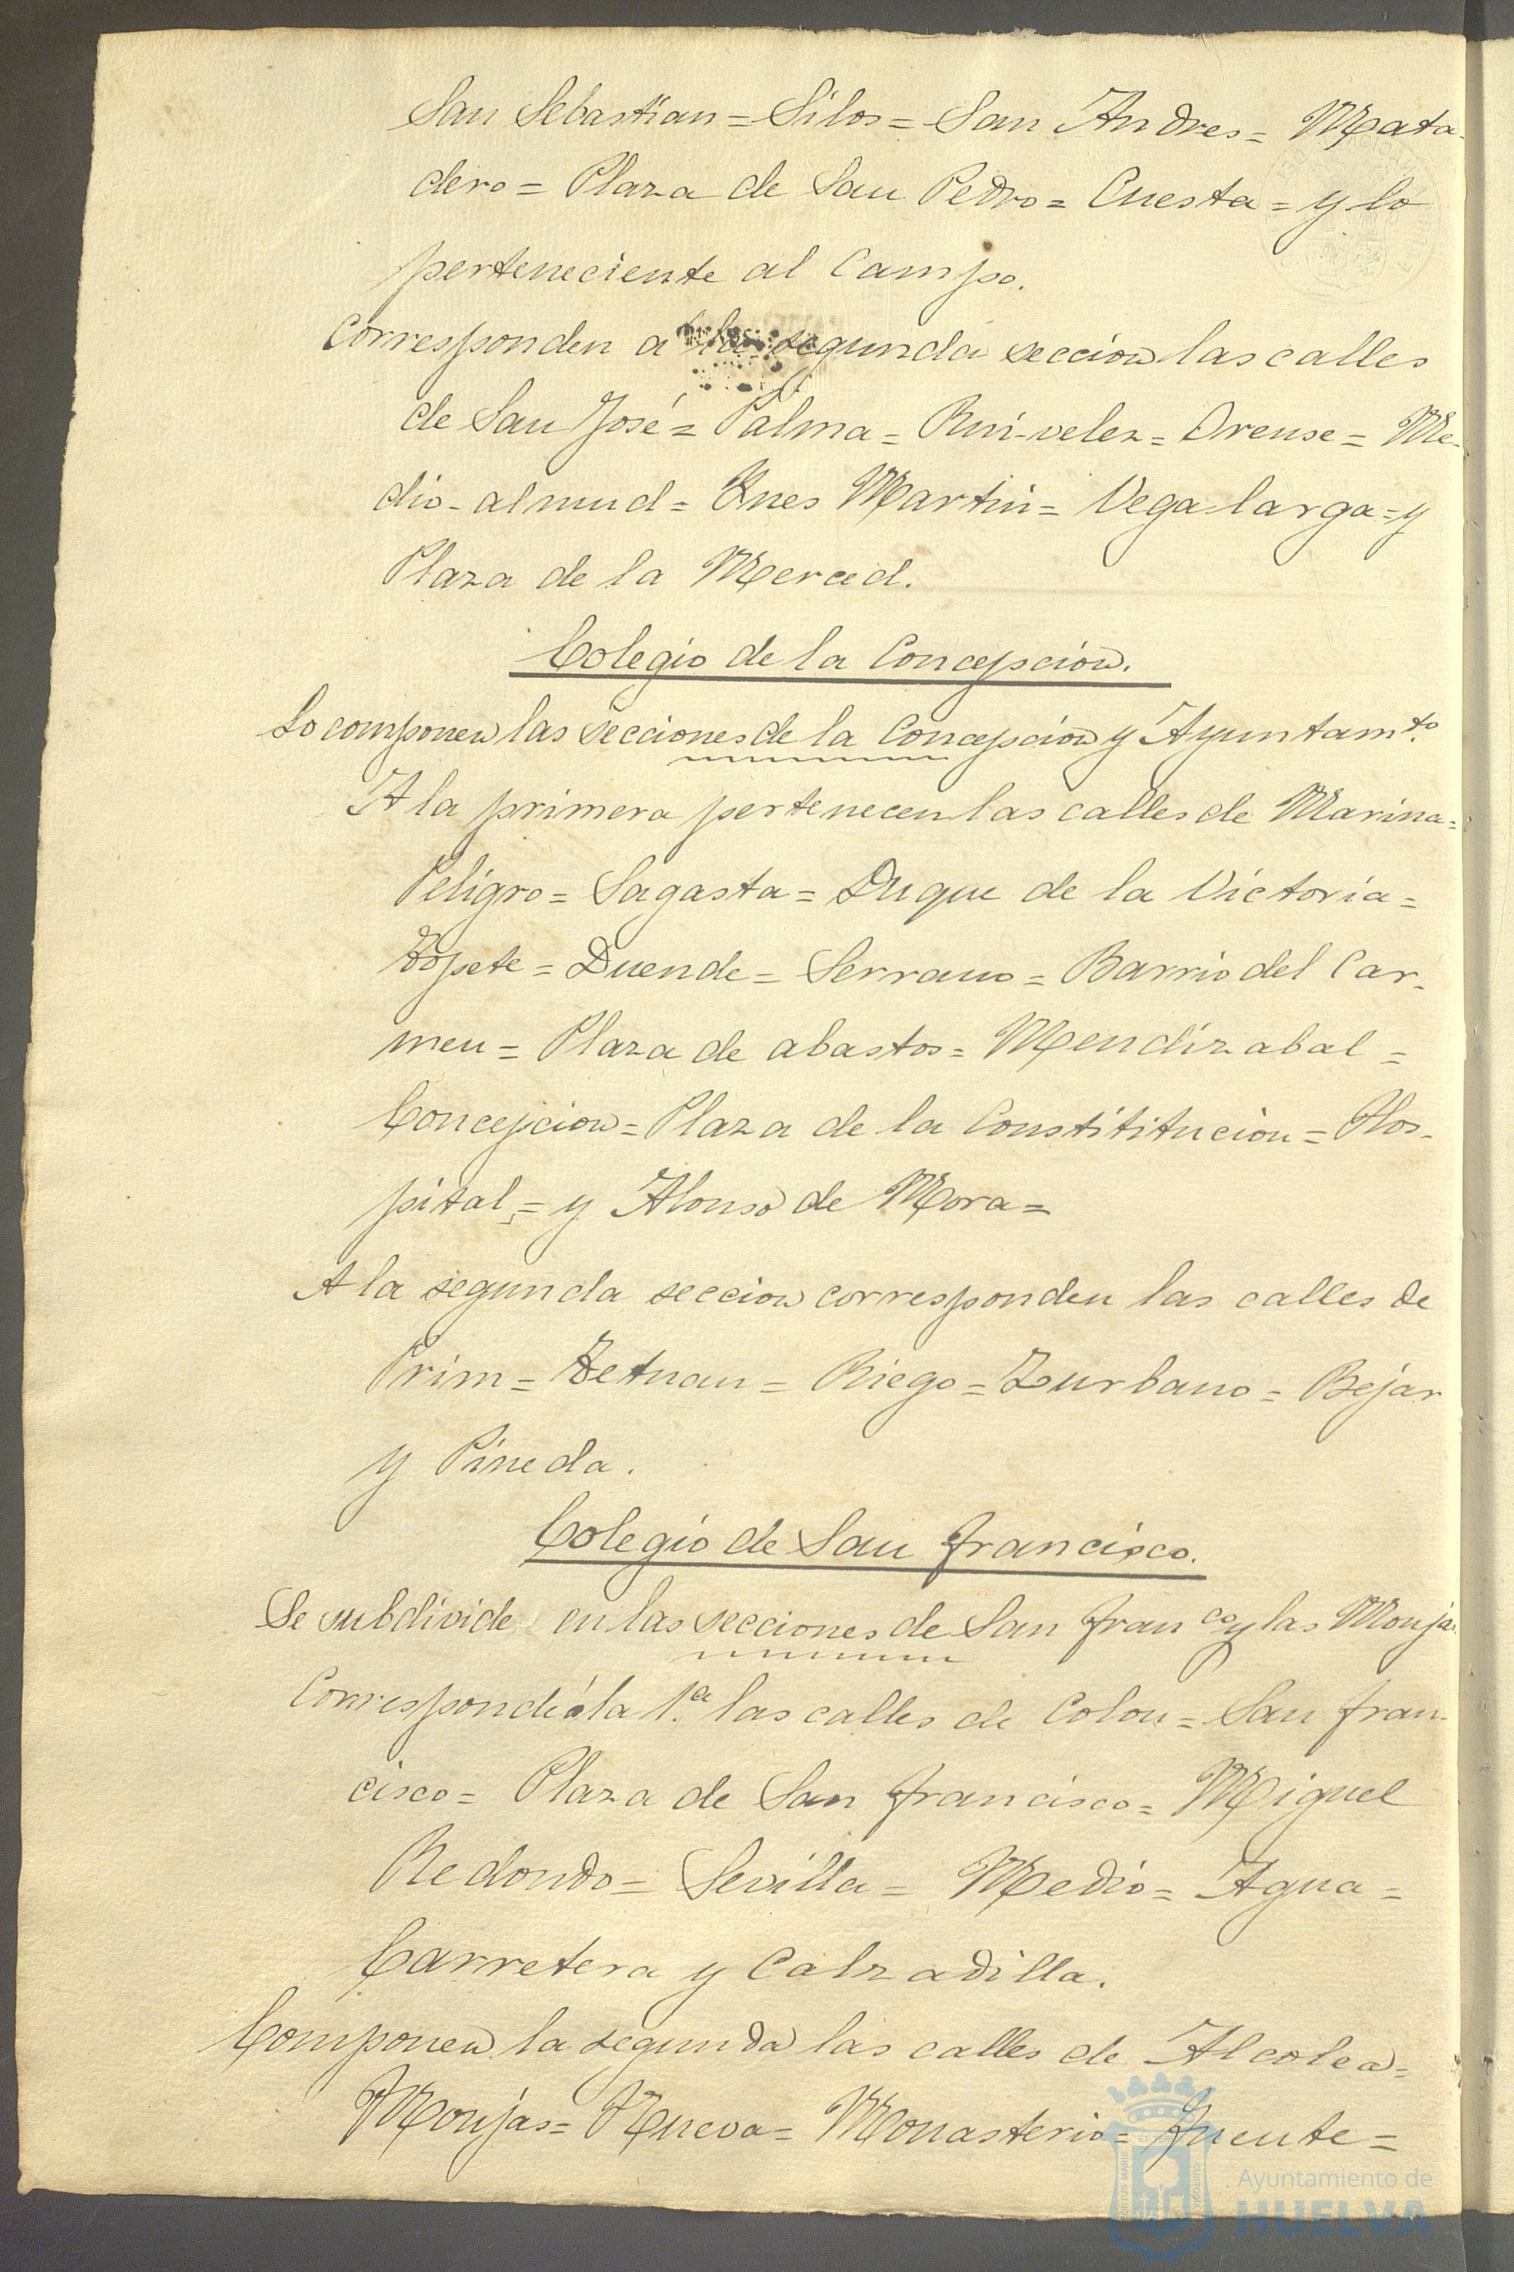 San Sebastian = Silos = San Andres = Mata-
dero = Plaza de San Pedro = Cuesta = y lo
perteneciente al Campo.
Corresponden a la segunda seccion las calles
de San José = Palma = Rui-velez = Orense = Me-
dio-almud = Ynes Martin = Vega-larga = y
Plaza de la Merced.
Colegio de la Concepcion.
Lo componen las secciones de la Concepcion y Ayuntam.to
A la primera pertenecen las calles de Marina =
Peligro = Sagasta = Duque de la Victoria =
Topete = Duende = Serrano = Barrio del Car-
men = Plaza de abastos = Mendizabal =
Concepcion = Plaza de la Constititucion = Hos-
pital = y Alonso de Mora =
A la segunda seccion corresponden las calles de
Prim = Tetuan = Riego = Zurbano = Bejar
y Pineda.
Colegio de San Francisco.
Se subdivide en las secciones de San Fran.co y las Monjas.
Corresponde á la 1.a las calles de Colon = San Fran-
cisco = Plaza de San Francisco = Miguel
Redondo = Sevilla = Medio = Agua =
Carretera y Calzadilla.
Componen la segunda las calles de Alcolea =
Monjas = Nueva = Monasterio = Fuente =
Ayuntamiento de
HUELVA